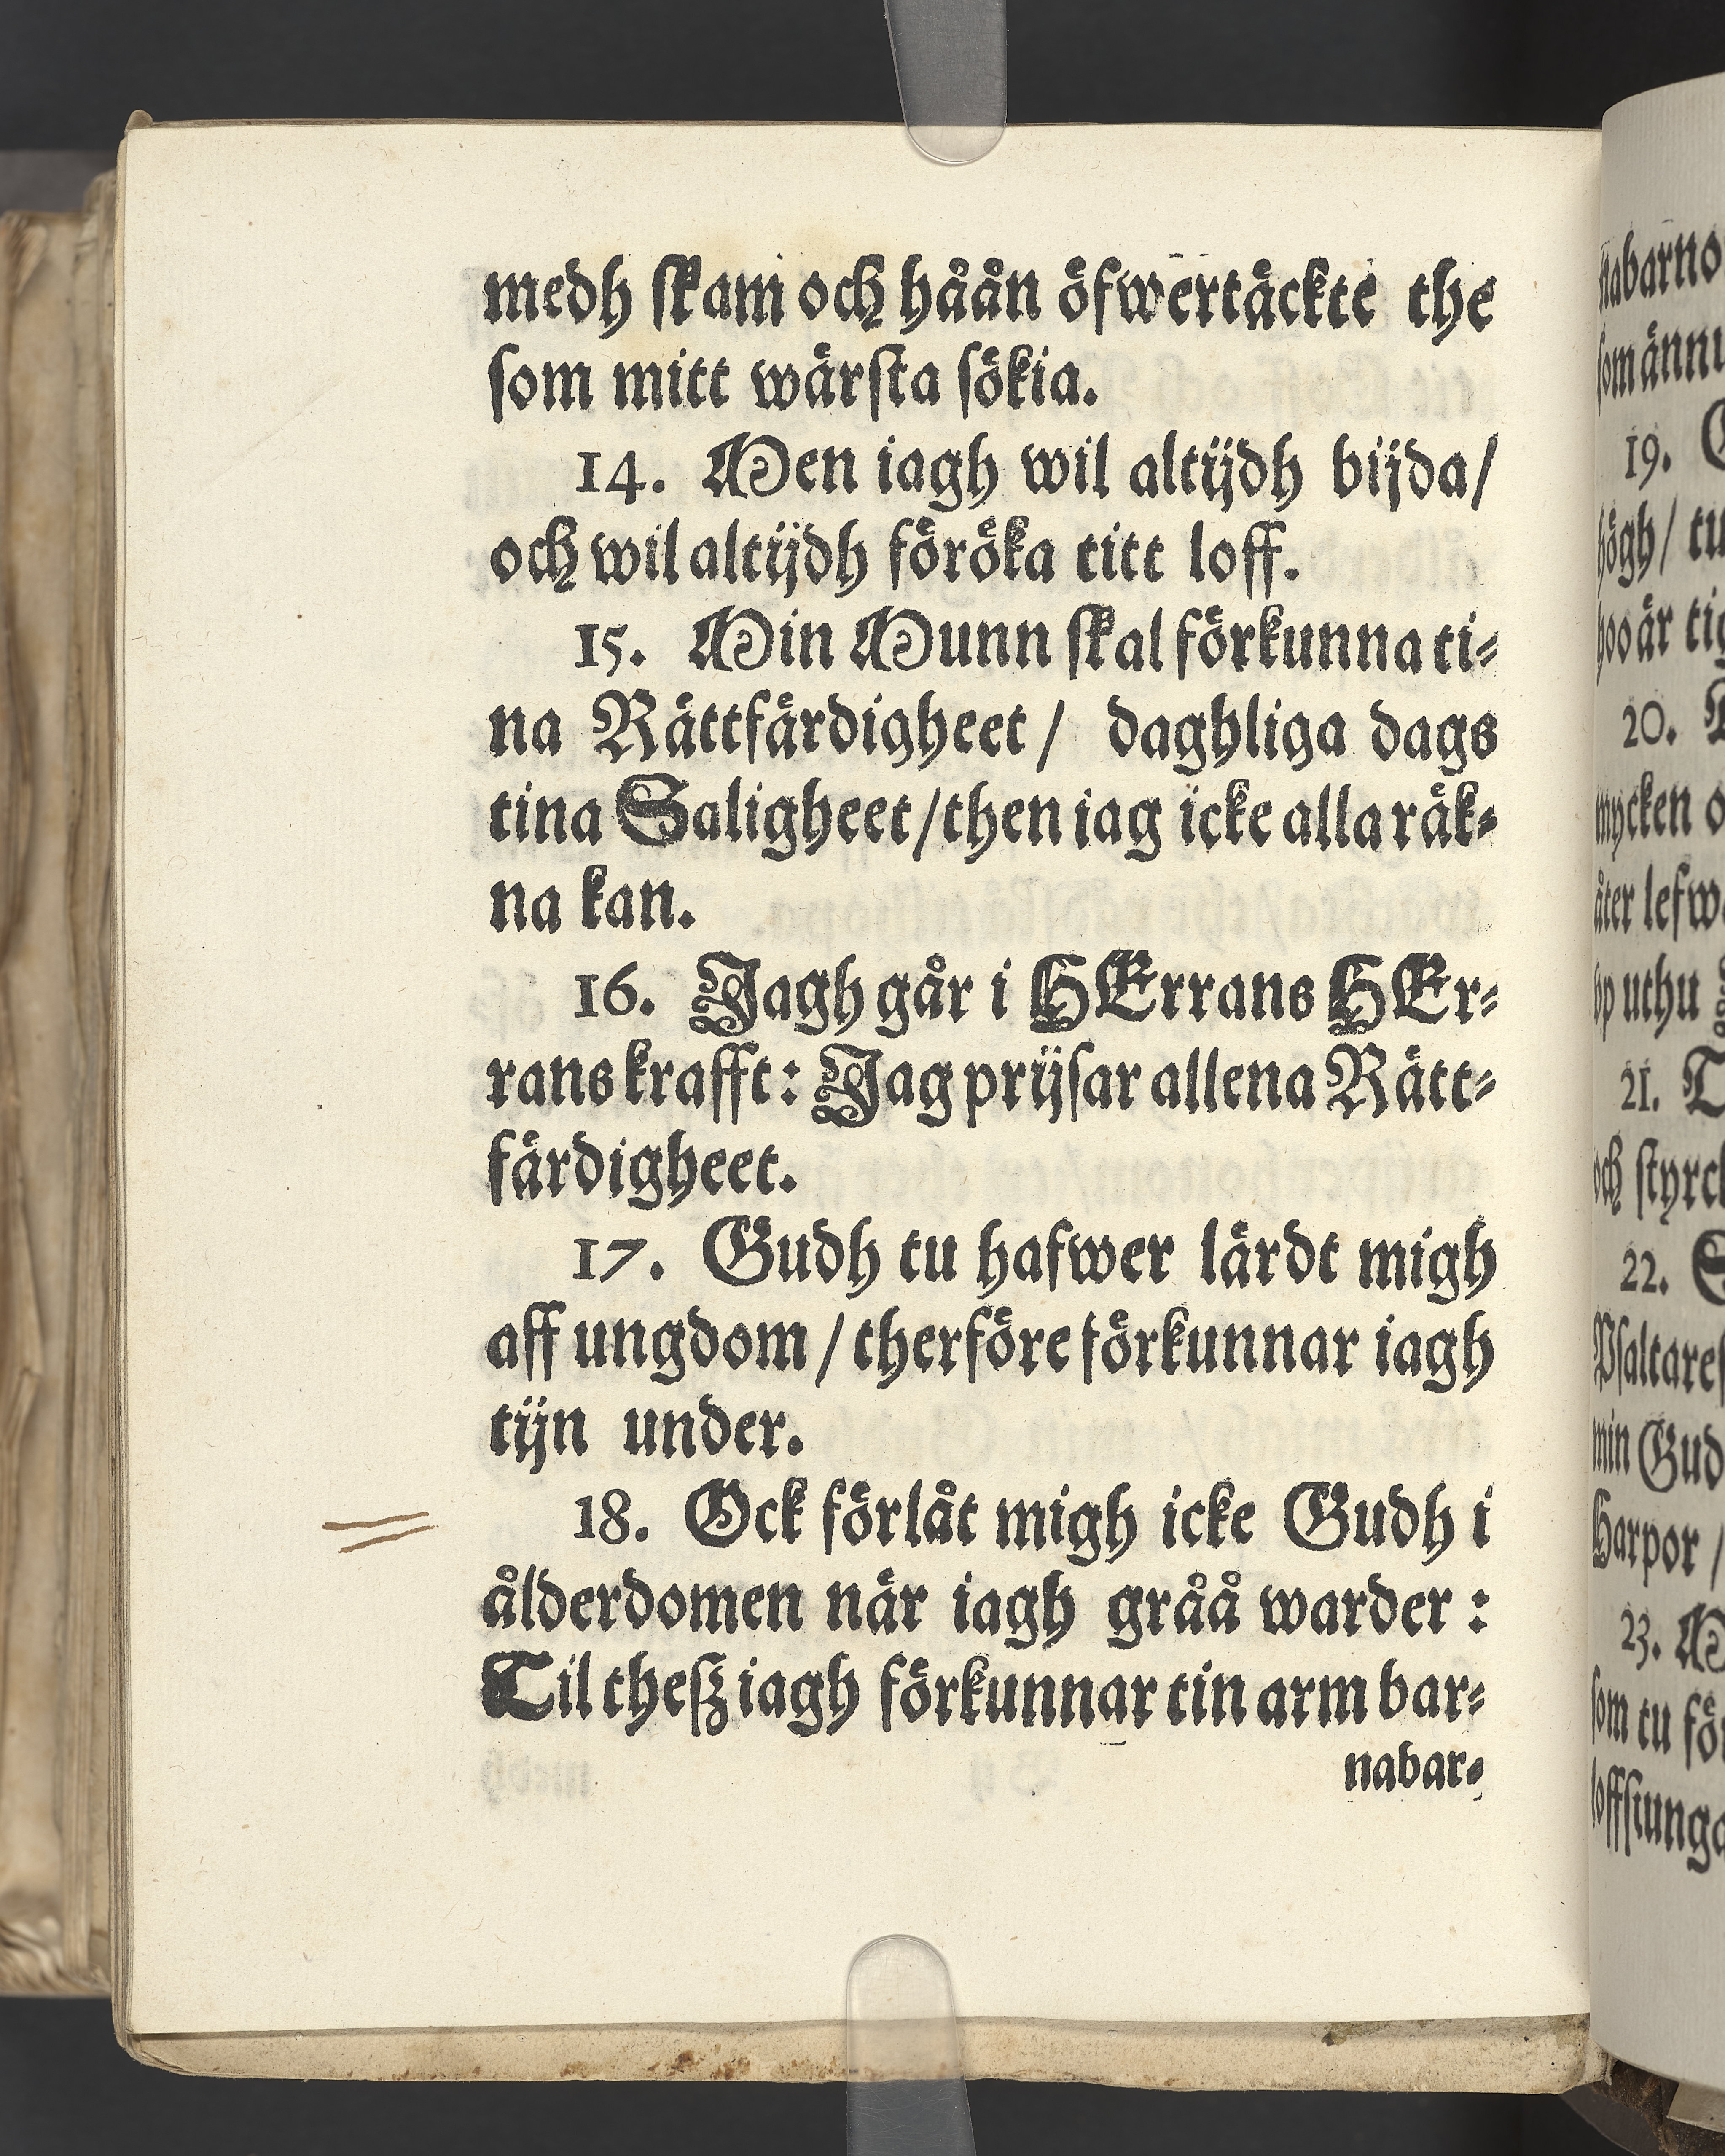 medh skam och håån öfwertäckte the
som mitt wärsta sökia.
14. Men iagh wil altijdh bijda/
och wil altijdh föröka titt loff.
15. Min Munn skal förkunna ti-
na Rättfärdigheet/ daghliga dags
tina Saligheet/then iag icke alla räk-
na kan.
16. Jagh går i HErrans HEr-
rans krafft: Jag prijsar allena Rätt-
färdigheet.
17. Gudh tu hafwer lärdt migh
aff ungdom/therföre förkunnar iagh
tijn under.
18. Ock förlåt migh icke Gudh i
ålderdomen när iagh gråå warder:
Til thesz iagh förkunnar tin arm bar-
nabar-
som ännu
19.
högh/ tu
hoo är
20.
mycken
åter
up uthu
21.
och
22.
min Gud
Harpor/
23.
som tu